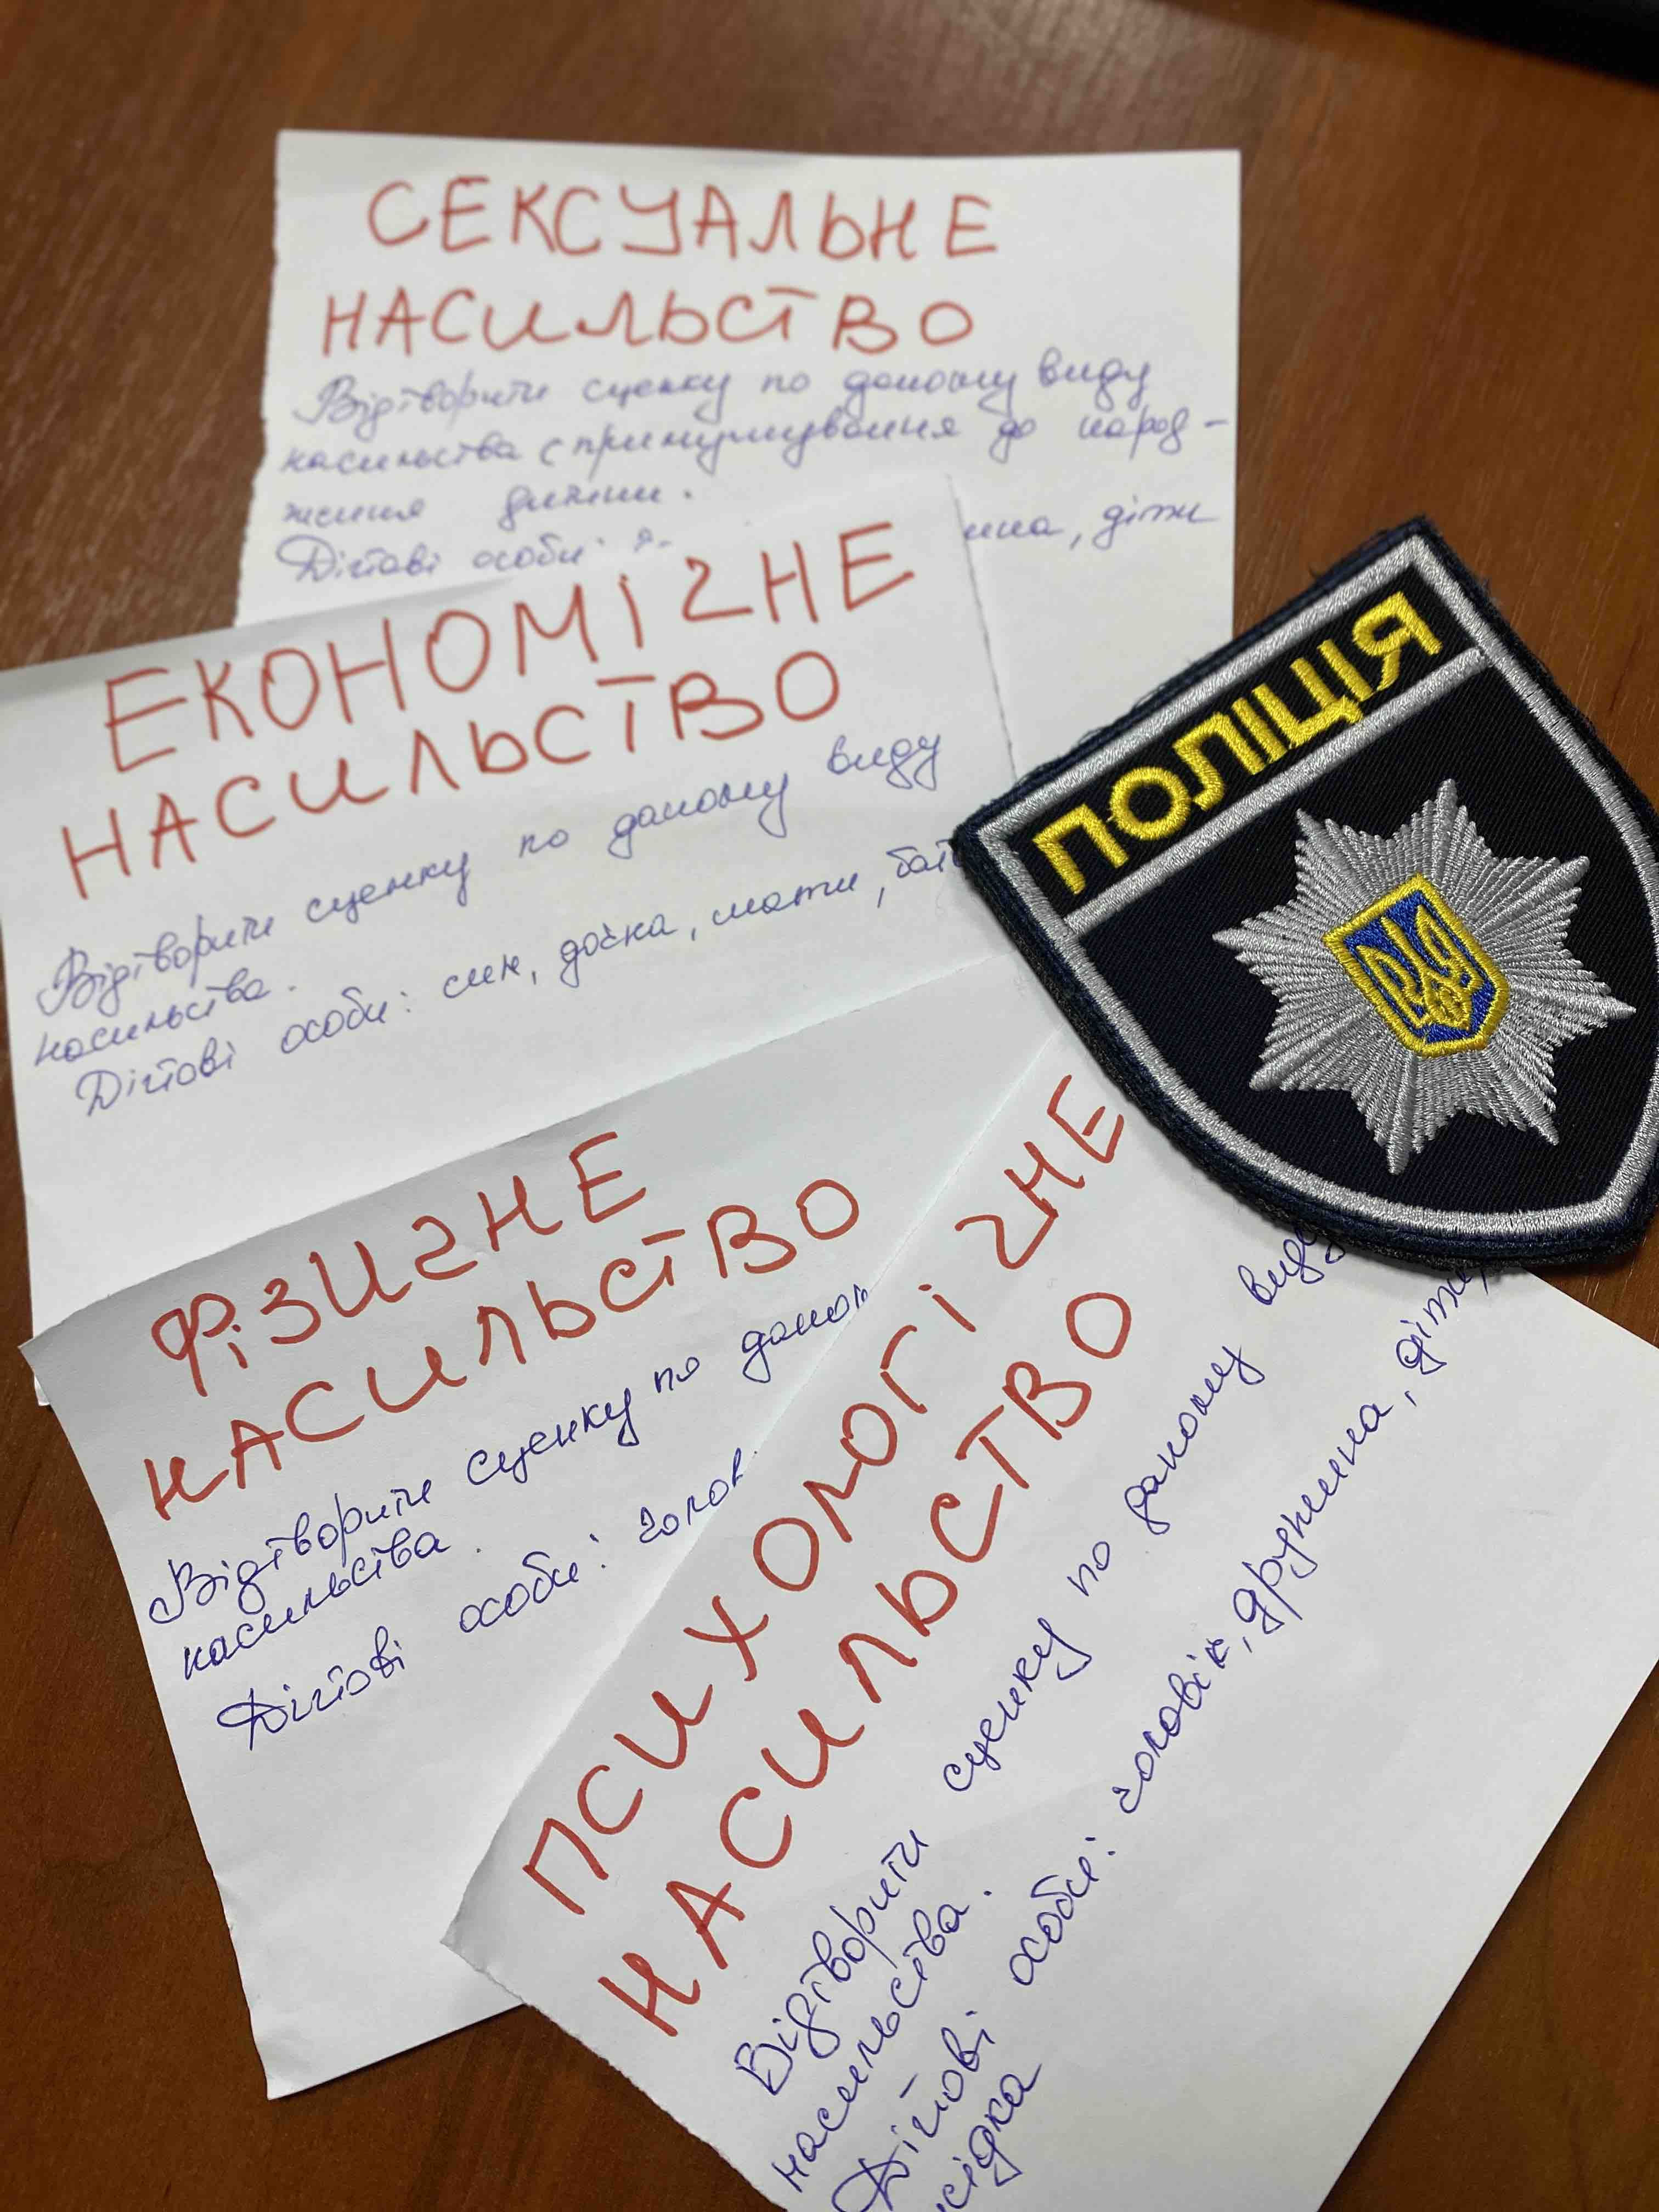 СЕКСУАЛЬНЕ
НАСИЛЬСТВО
Відтворити сценку по даному виду
насильства (примушування до народ-
ження дитини.
Дійові особи:
діти
ЕКОНОМІЧНЕ
НАСИЛЬСТВО
Відтворити сценку по даному виду
насильства.
Дійові особи: син, дочка, мати,
ФІЗИЧНЕ
НАСИЛЬСТВО
Відтворити сценку по
насильства.
Дійові особи:
ПСИХОЛОГІЧНЕ
НАСИЛЬСТВО
Відтворити сценку по даному виду
насильства.
Дійові особи: чоловік, дружина, діти,
ПОЛІЦІЯ